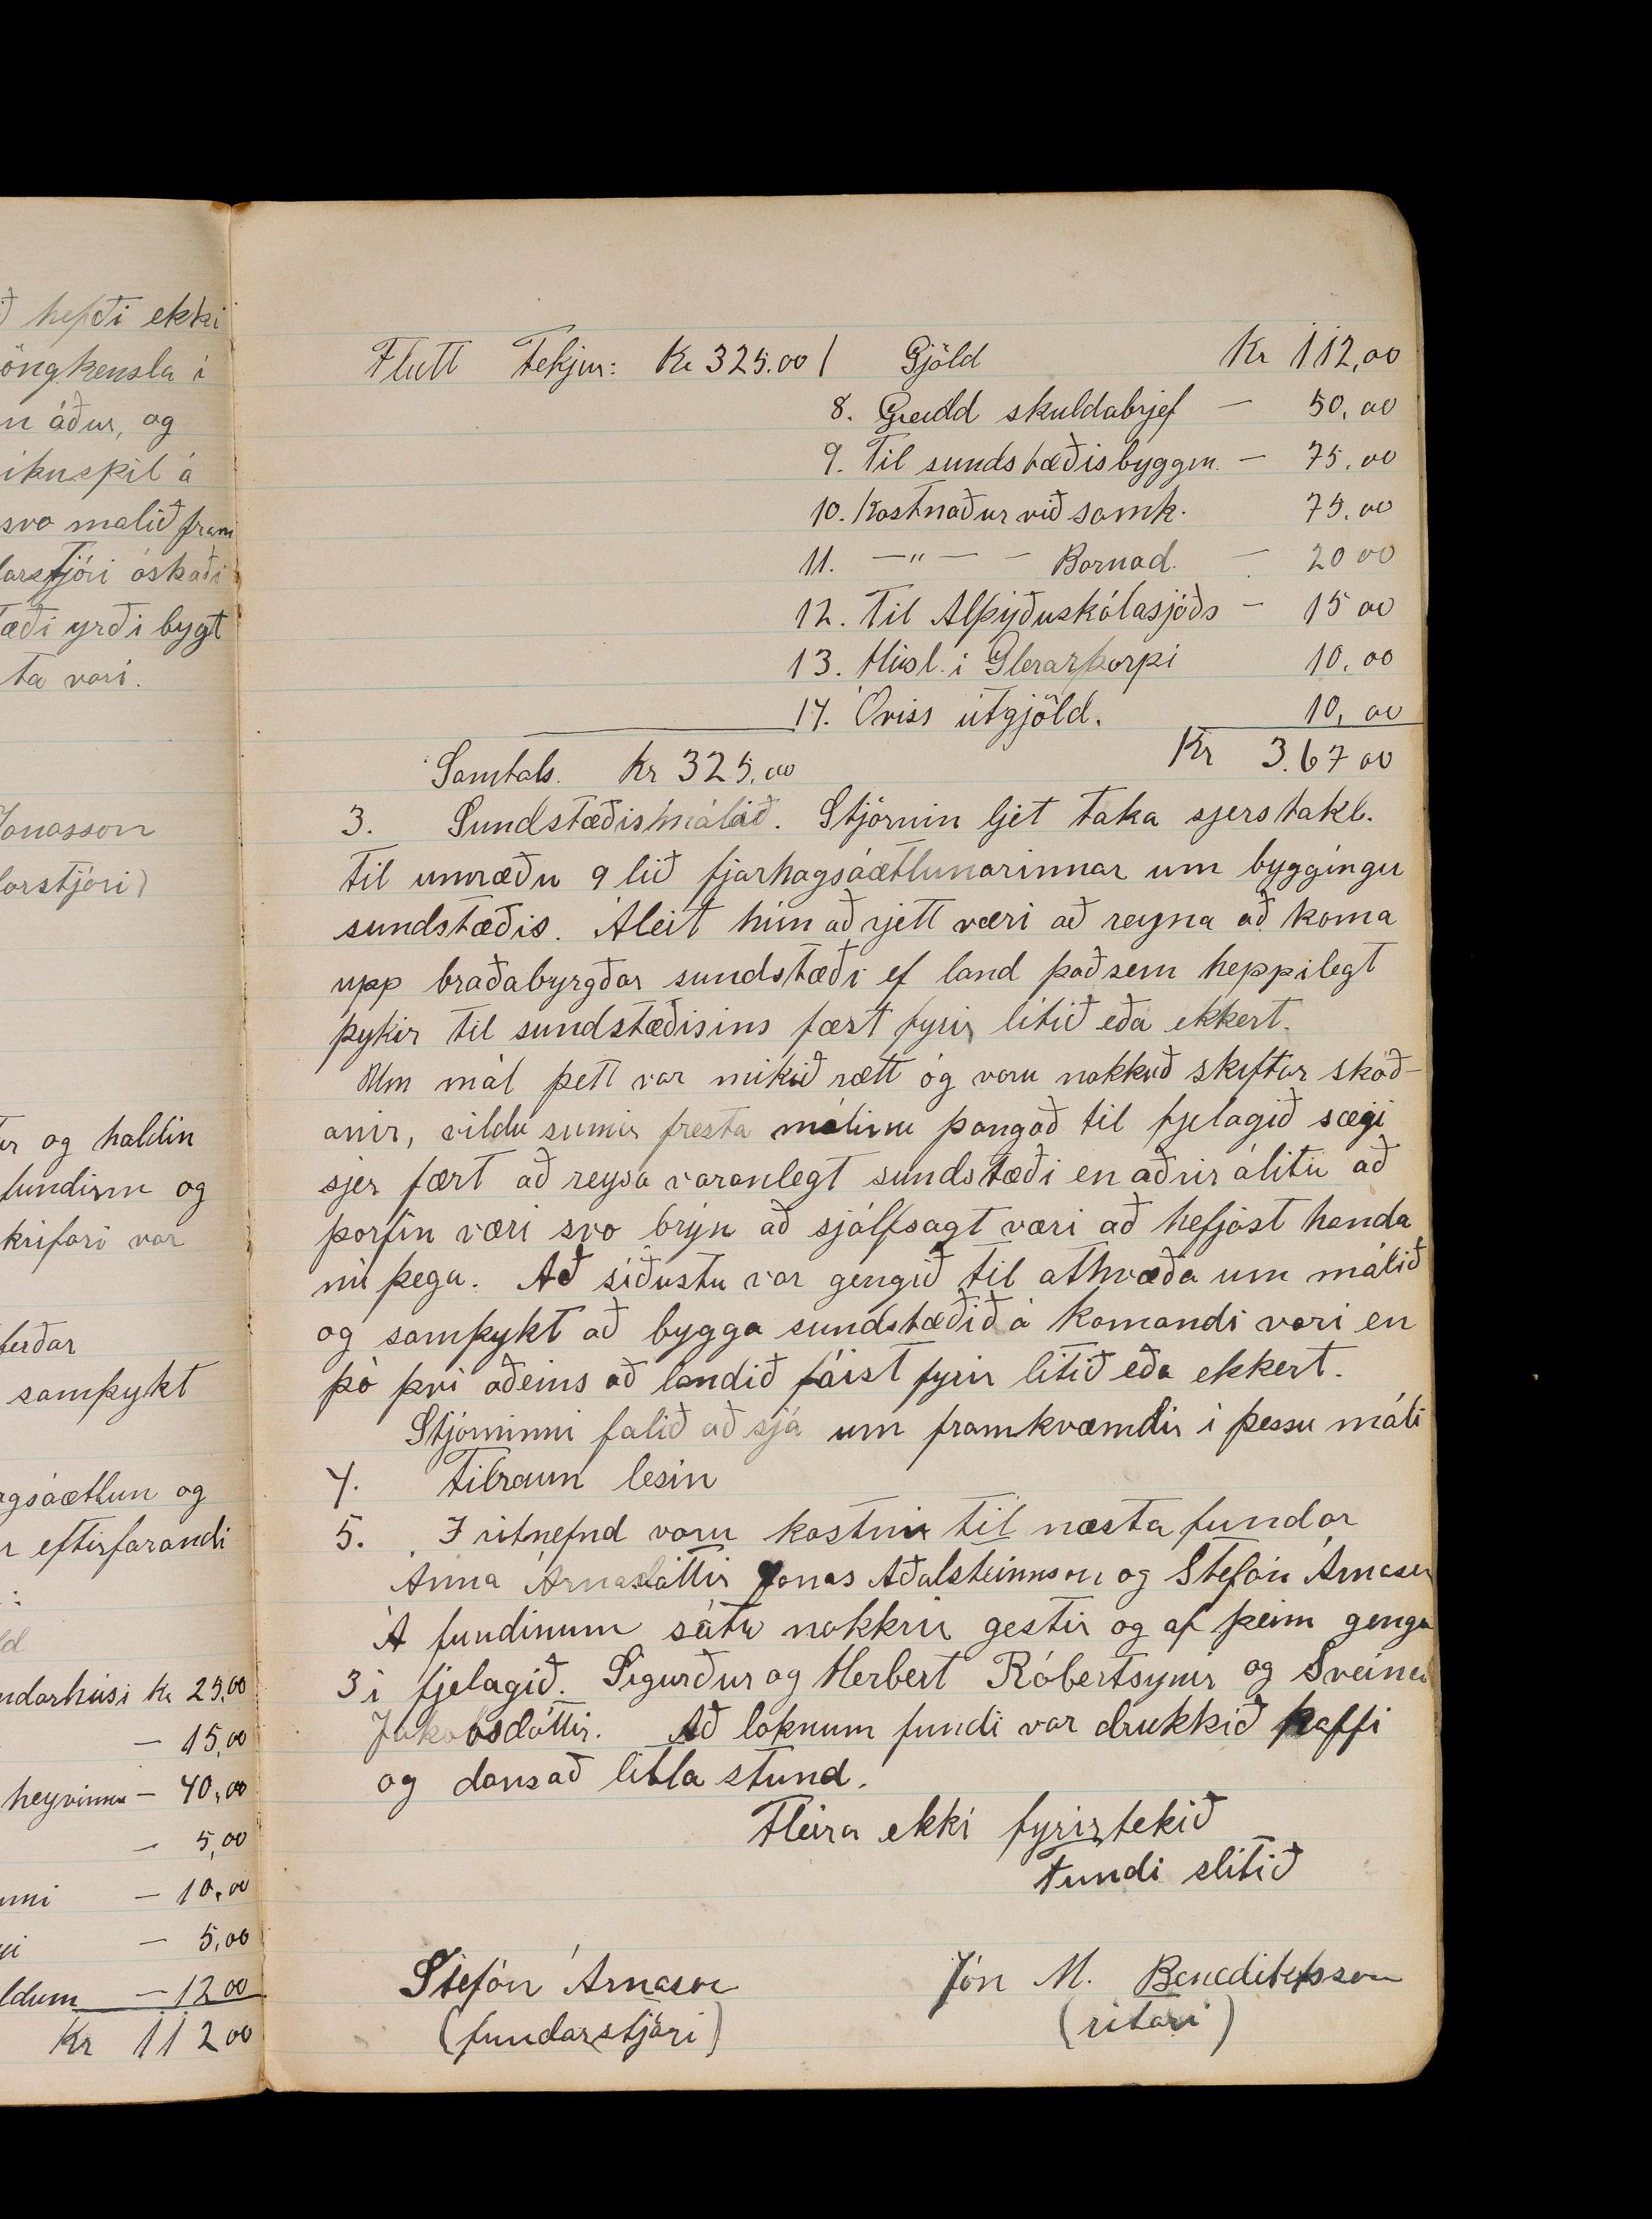 ð hefði ekki
öngkensla í
n áður, og
svo malið fram
arstjóri óskaði
tæði yrði bygt
ta vori.
Jonasson
arstjóri)
ur og haldin
fundinn og
krifari var
ferðar
samþykt
agsáætlun og
r eftirfarandi
ld
ndarhúsi Kr 25,00
— 15,00
heyvinnu — 40,00
— 5,00
— 10,00
— 5,00
ldum — 12 00
Kr 112 00
Flutt Tekjur: Kr 325.00 / Gjöld Kr 112,00
8. Greidd skuldabrjef — 50,00
9. Til sundstæðisbyggin. — 75,00
10. Kostnaður við samk. 75,00
11. —"— — Barnad. — 20 00
12. Til Alþýðuskólasjóðs — 15 00
13. Husl. i Glerarþorpi 10,00
14. Óviss útgjöld. 10,00
Samtals. Kr 325,00 Kr 3.67 00
3. Sundstæðismálið. Stjórnin ljet taka sjerstakl.
til umræðu 9 lið fjarhagsáætlunarinnar um byggingu
sundstæðis. Áleit hún að rjett væri að reyna að koma
upp braðabyrgðar sundstæði ef land það sem heppilegt
þykir til sundstæðisins fært fyrir litið eða ekkert.
Um mál þett var mikið rætt og voru nokkuð skiftar skoð-
anir, vildu sumir fresta málinu þangað til fjelagið sægi
sjer fært að reysa varanlegt sundstæði en aðrir álitu að
þorfin væri svo brýn að sjálfsagt væri að hefjast handa
nú þega. Að síðustu var gengið til athvæða um málið
og samþykt að bygga sundstæðið á komandi vori en
þó því aðeins að landið fáist fyrir litið eða ekkert.
Stjórninni falið að sjá um framkvæmdir i þessu máli
4. Tilraun lesin
5. I ritnefnd voru kostnir til næsta fundar
Anna Árnadóttir Jonas Aðalsteinnson og Stefán Árnason
Á fundinum sátu nokkrir gestir og af þeim gengu
3 i fjelagið. Sigurður og Herbert Róbertsynir og Sveina
Jakobsdóttir. Að loknum fundi var drukkið kaffi
og dansað litla stund.
Fleira ekki fyrirtekið
Fundi slitið
Stefán Árnason Jón M. Benediktsson
(fundarstjóri) (ritari)